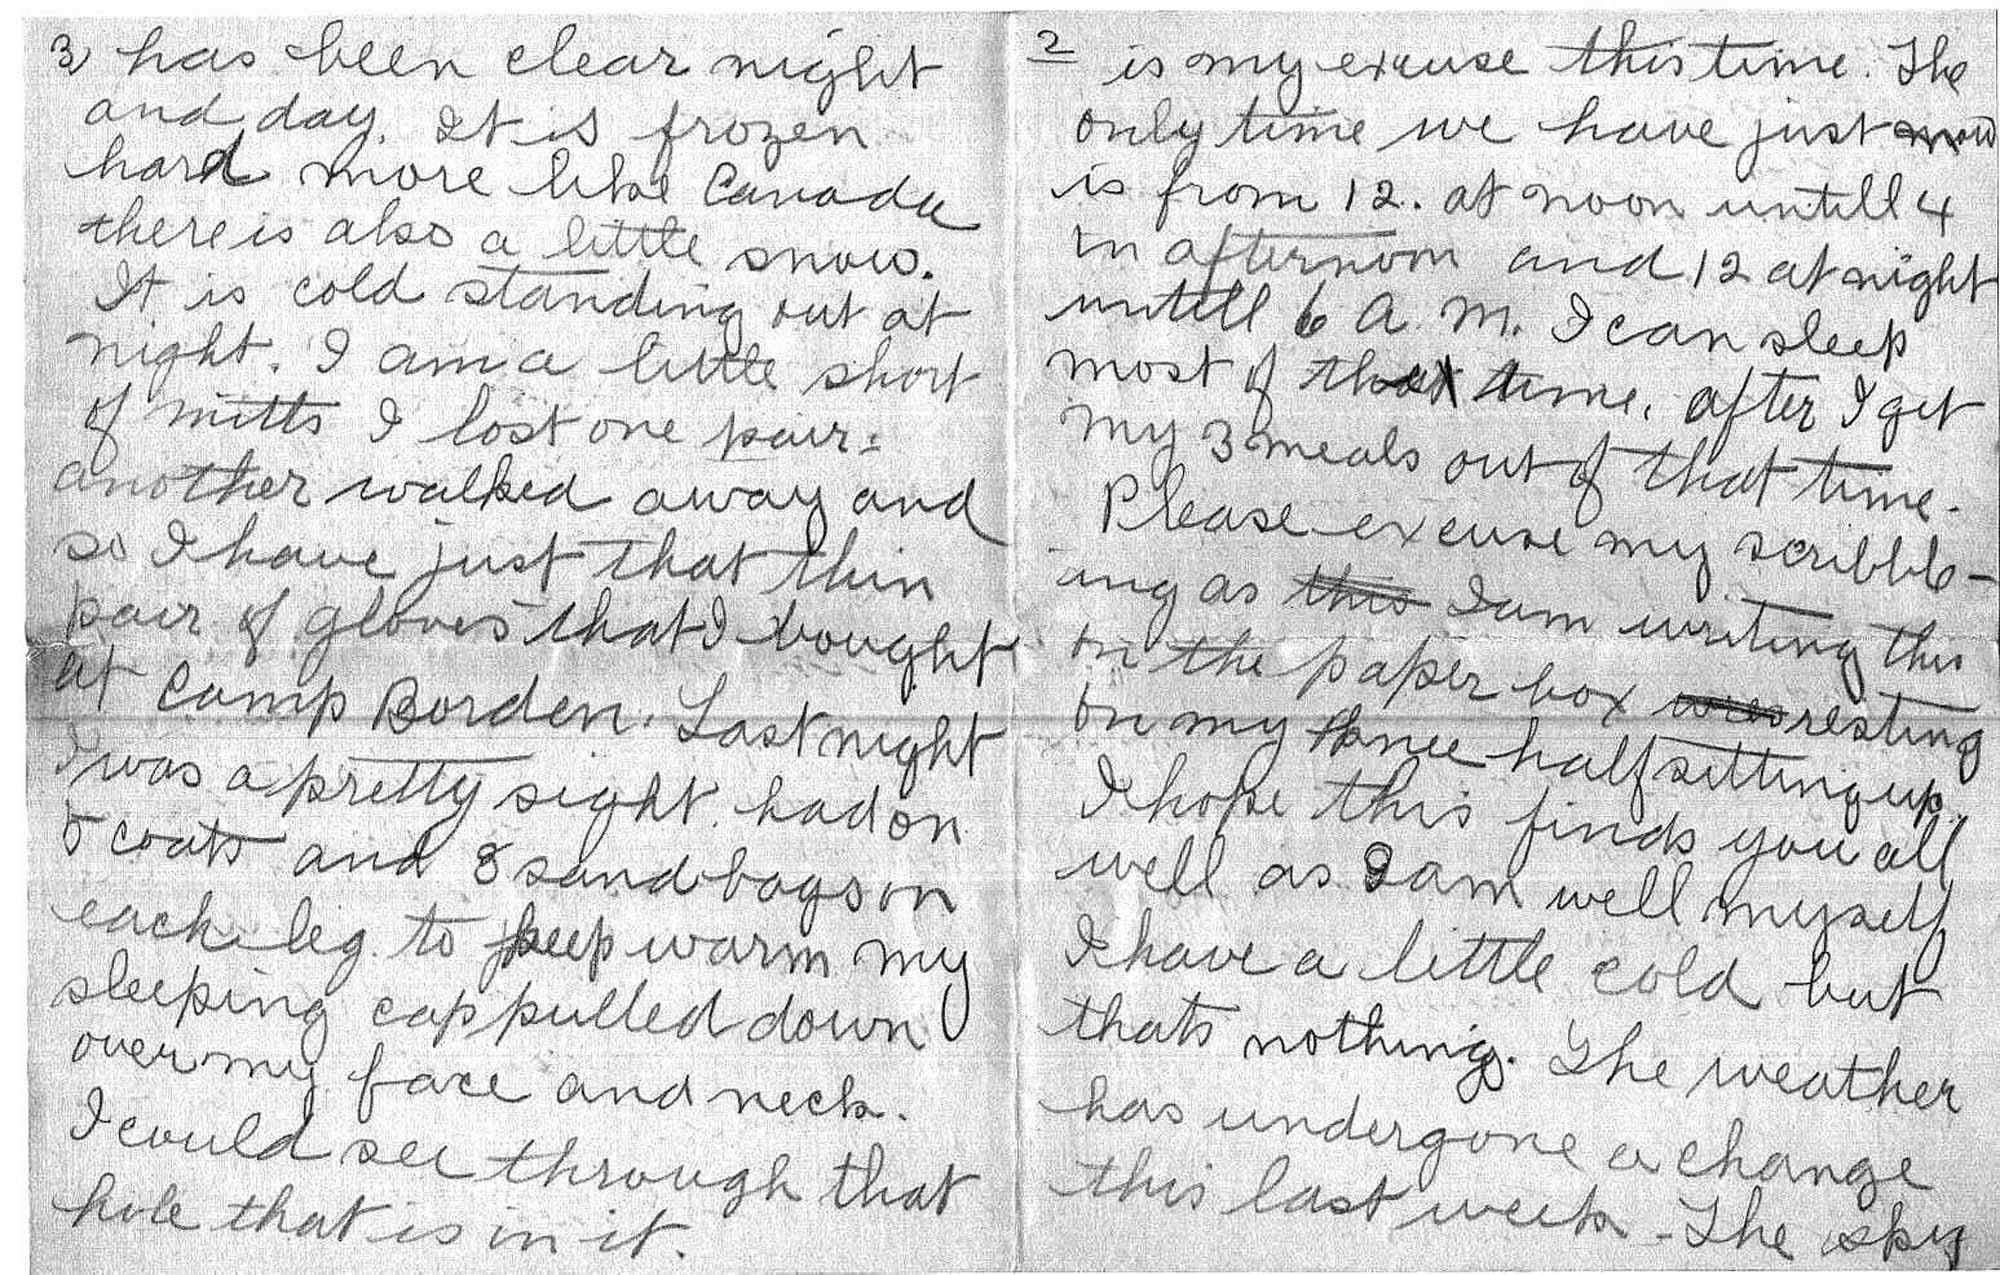 2 is my excuse this time. The
only time we have just now
is from 12. at noon untill 4
in afternoon and 12 at night
untill 6 A. M. I can sleep
most of that time. after I get
my 3 meals out of that time.
Please excuse my scribbl-
ing as this I am writing this
on the paper box resting
on my knee half sitting up.
I hope this finds you all
well as I am well myself
I have a little cold but
thats nothing. The weather
has undergone a change
this last week - The sky
3 has been clear night
and day. It is frozen
hard more like Canada
there is also a little snow.
It is cold standing out at
night. I am a little short
of mitts I lost one pair:
another walked away and
so I have just that thin
pair of gloves that I bought
at Camp Borden. Last night
I was a pretty sight. had on
5 coats and 8 sandbags on
each leg. to keep warm my
sleeping cap pulled down
over my face and neck.
I could see through that
hole that is in it.